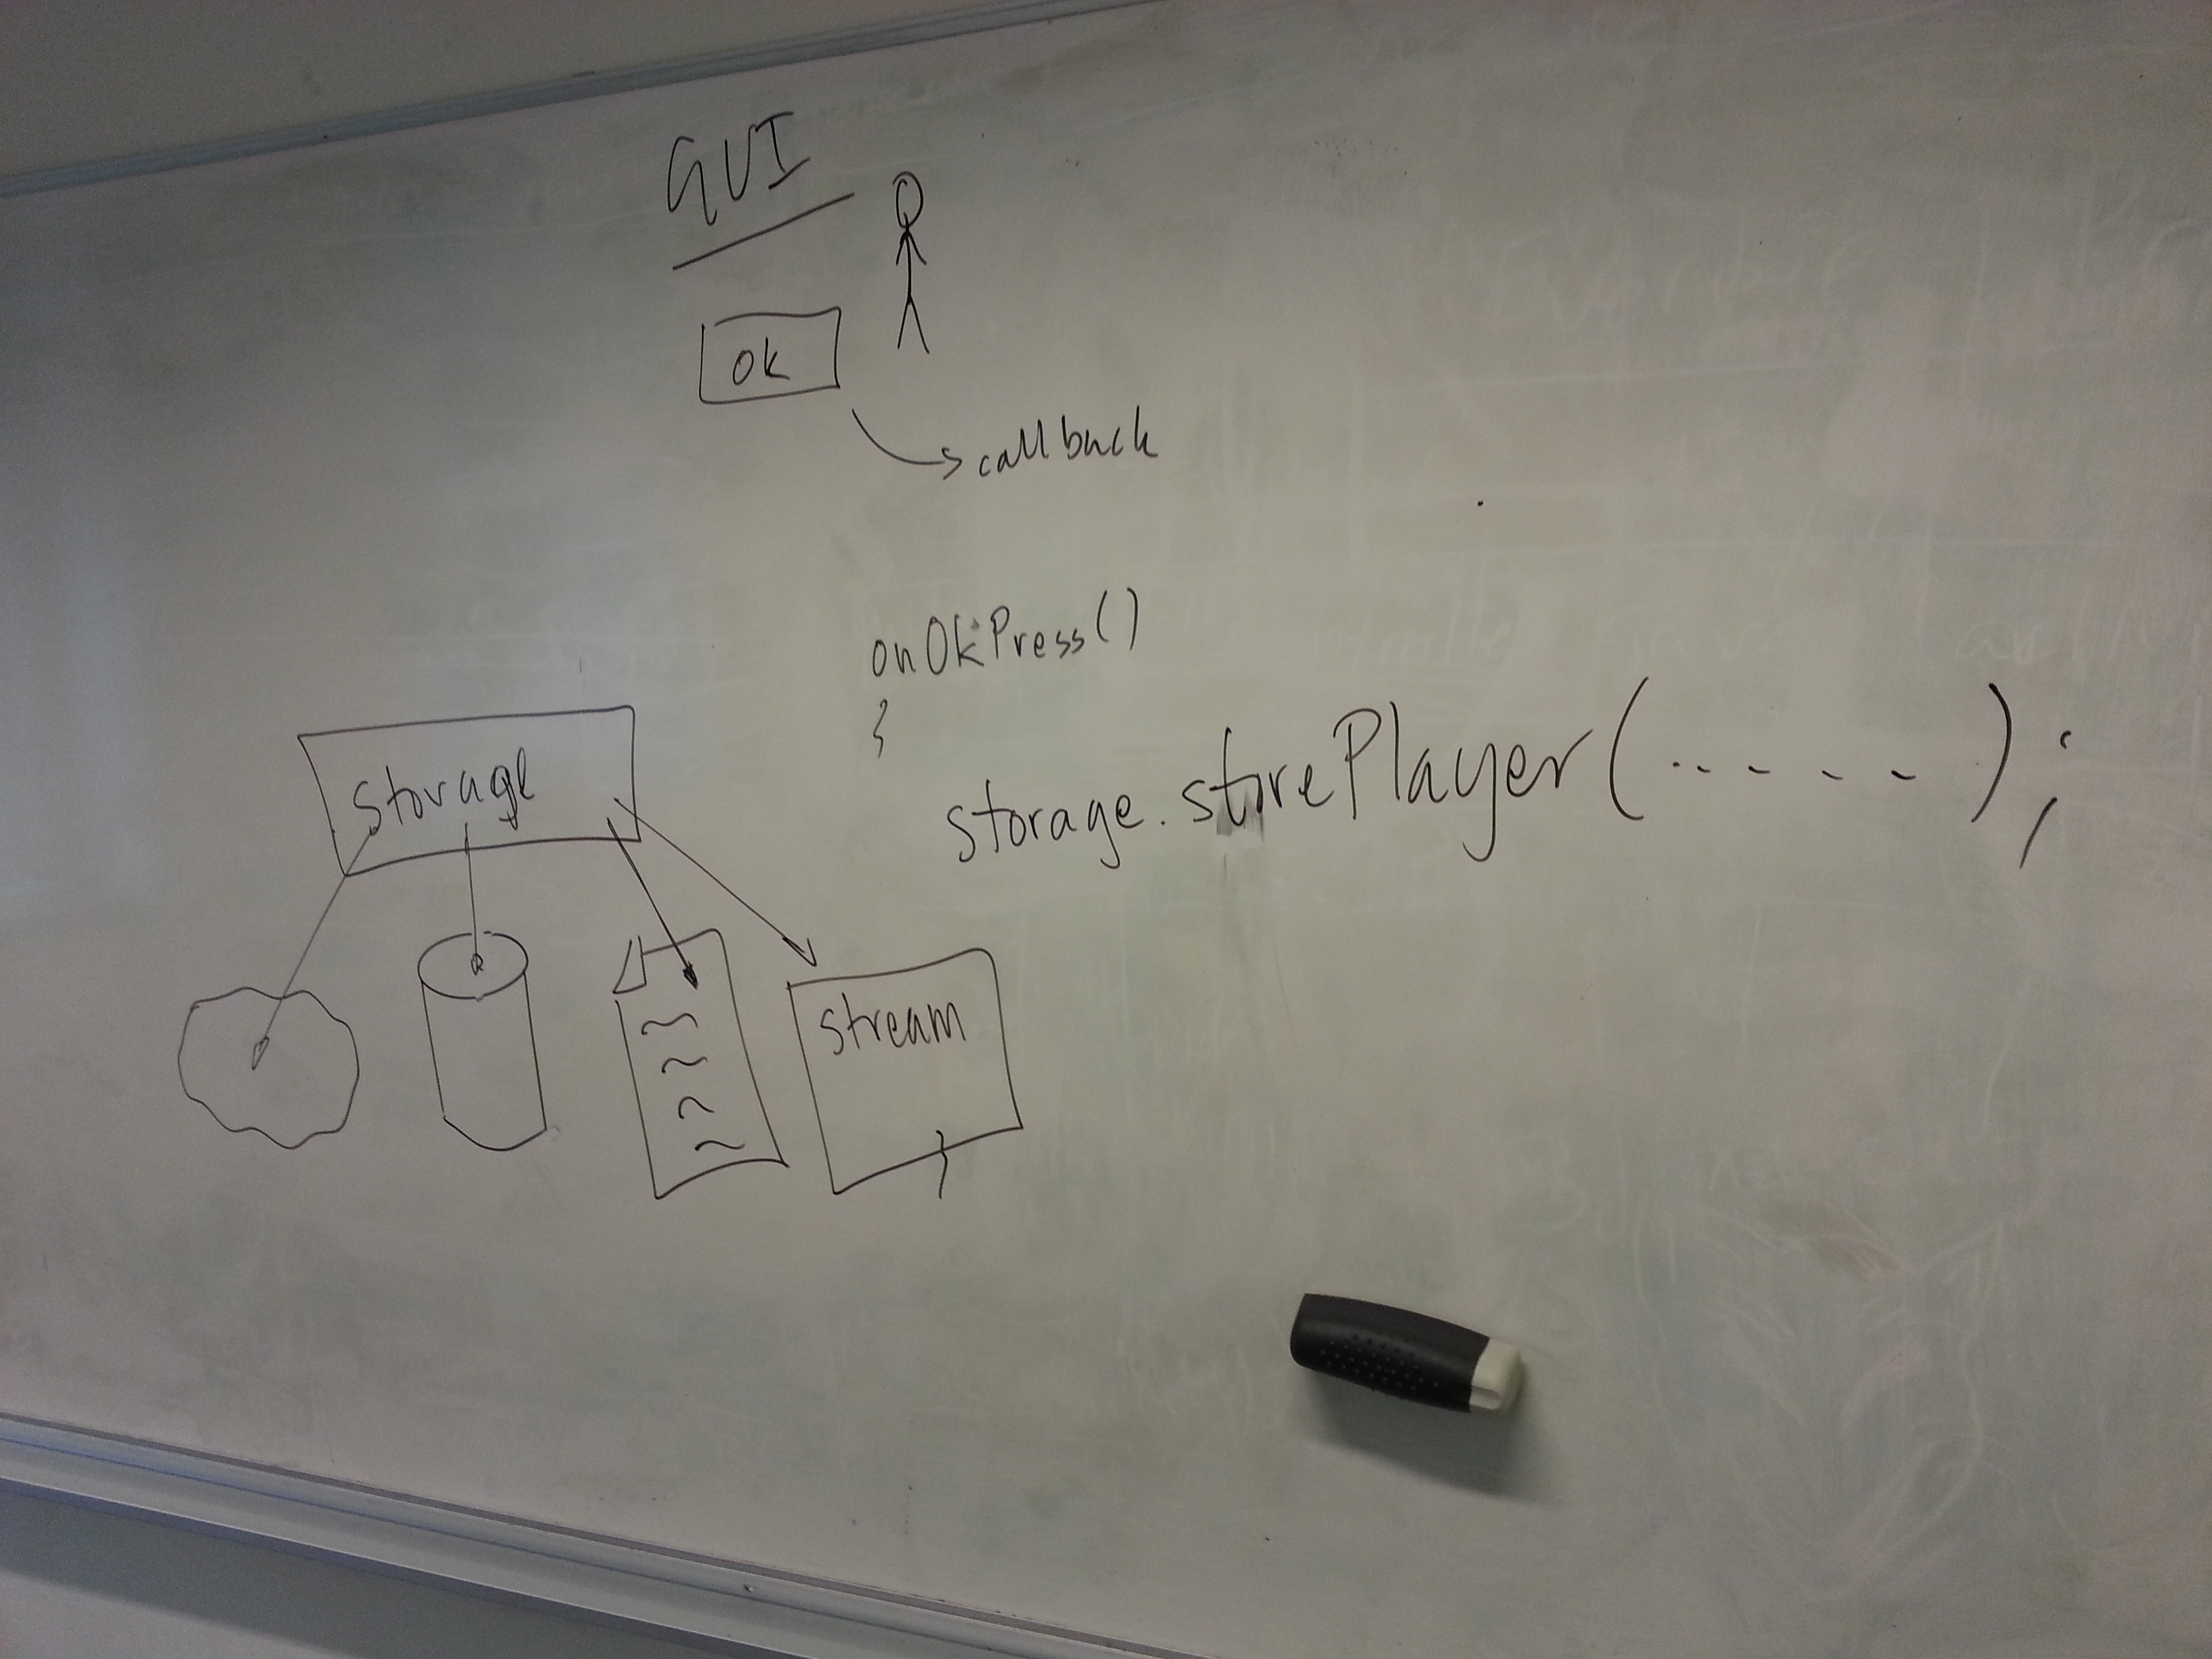 GUI
ok
callback
onOkPress()
{
storage.storePlayer(.....);
storage
stream
}